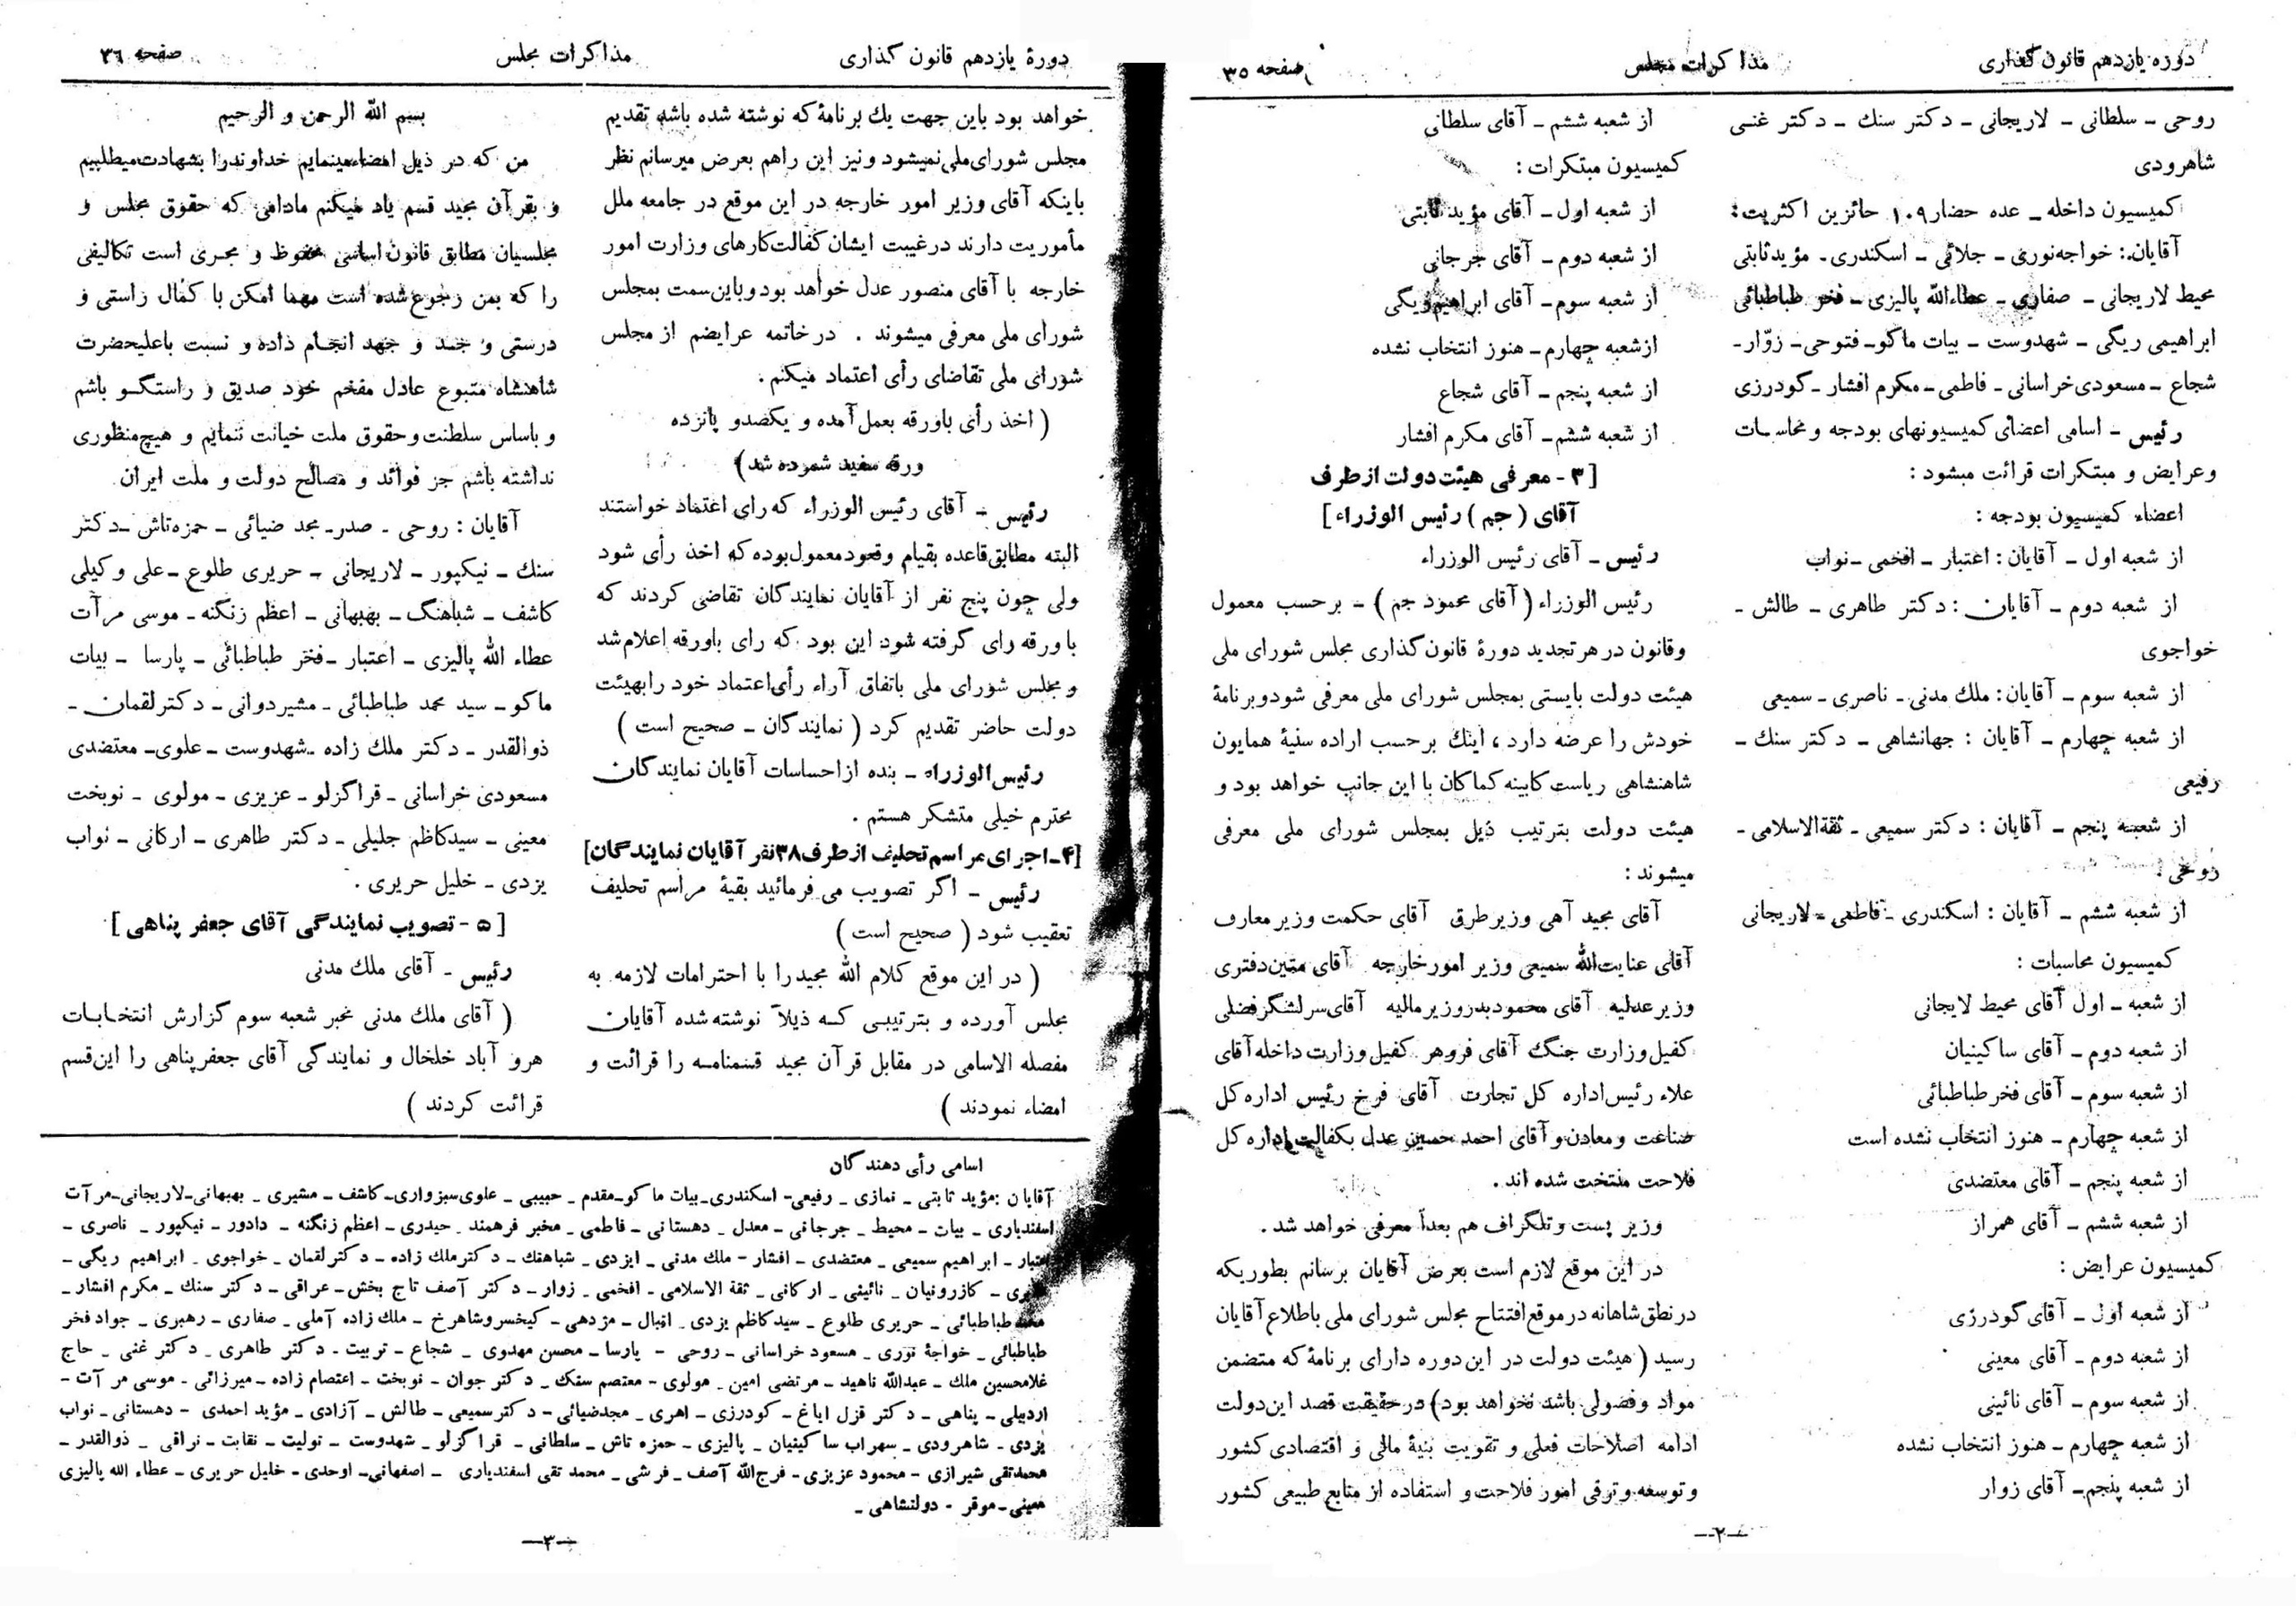 دوره یازدهم قانون گذاری
مذاکرات مجلس
صفحه ۳۵
روحی ـ سلطانی ـ لاریجانی ـ دکتر سنك ـ دکتر غنی
شاهرودی
کمیسیون داخله ـ عده حضار ۱۰۹ حائزین اکثریت:
آقایان: خواجه‌نوری ـ جلائی ـ اسکندری ـ مؤیدثابتی
محیط لاریجانی ـ صفاری ـ عطاءالله پالیزی ـ فخر طباطبائی
ابراهیمی ریگی ـ شهدوست ـ بیات ماکو ـ فتوحی ـ زوّار ـ
شجاع ـ مسعودی خراسانی ـ فاطمی ـ مکرم افشار ـ گودرزی
رئیس ـ اسامی اعضای کمیسیونهای بودجه و محاسبات
وعرایض و مبتکرات قرائت میشود :
اعضاء کمیسیون بودجه :
از شعبه اول ـ آقایان : اعتبار ـ افخمی ـ نواب
از شعبه دوم ـ آقایان : دکتر طاهری ـ طالش ـ
خواجوی
از شعبه سوم ـ آقایان : ملك مدنی ـ ناصری ـ سمیعی
از شعبه چهارم ـ آقایان : جهانشاهی ـ دکتر سنك ـ
رفیعی
از شعبه پنجم ـ آقایان : دکتر سمیعی ـ ثقةالاسلامی ـ
روحی .
از شعبه ششم ـ آقایان : اسکندری ـ فاطمی ـ لاریجانی
کمیسیون محاسبات :
از شعبه ـ اول آقای محیط لایجانی
از شعبه دوم ـ آقای ساکینیان
از شعبه سوم ـ آقای فخر طباطبائی
از شعبه چهارم ـ هنوز انتخاب نشده است
از شعبه پنجم ـ آقای معتضدی
از شعبه ششم ـ آقای همراز
کمیسیون عرایض :
از شعبه اول ـ آقای گودرزی
از شعبه دوم ـ آقای معینی
از شعبه سوم ـ آقای نائینی
از شعبه چهارم ـ هنوز انتخاب نشده
از شعبه پنجم ـ آقای زوار
از شعبه ششم ـ آقای سلطانی
کمیسیون مبتکرات :
از شعبه اول ـ آقای مؤید ثابتی
از شعبه دوم ـ آقای جرجانی
از شعبه سوم ـ آقای ابراهیم ریگی
ازشعبه چهارم ـ هنوز انتخاب نشده
از شعبه پنجم ـ آقای شجاع
از شعبه ششم ـ آقای مکرم افشار
[ ۳ - معرفی هیئت دولت از طرف
آقای ( جم ) رئیس الوزراء ]
رئیس ـ آقای رئیس الوزراء
رئیس الوزراء ( آقای محمود جم ) ـ برحسب معمول
وقانون در هر تجدید دورهٔ قانون گذاری مجلس شورای ملی
هیئت دولت بایستی بمجلس شورای ملی معرفی شود و برنامهٔ
خودش را عرضه دارد ، اینك برحسب اراده سنیهٔ همایون
شاهنشاهی ریاست کابینه کماکان با این جانب خواهد بود و
هیئت دولت بترتیب ذیل بمجلس شورای ملی معرفی
میشوند :
آقای مجید آهی وزیر طرق آقای حکمت وزیر معارف
آقای عنایت‌الله سمیعی وزیر امور خارجه آقای متین‌دفتری
وزیر عدلیه آقای محمود بدر وزیر مالیه آقای سرلشگر فضلی
کفیل وزارت جنگ آقای فروهر کفیل وزارت داخله آقای
علاء رئیس اداره کل تجارت آقای فرخ رئیس اداره کل
صناعت و معادن و آقای احمد حسین عدل بکفالت اداره کل
فلاحت منتخب شده اند .
وزیر پست و تلگراف هم بعداً معرفی خواهد شد .
در این موقع لازم است بعرض آقایان برسانم بطوریکه
در نطق شاهانه در موقع افتتاح مجلس شورای ملی باطلاع آقایان
رسید ( هیئت دولت در این دوره دارای برنامهٔ که متضمن
مواد وفصولی باشد نخواهد بود ) در حقیقت قصد این دولت
ادامه اصلاحات فعلی و تقویت بنیهٔ مالی و اقتصادی کشور
و توسعه و ترقی امور فلاحت و استفاده از منابع طبیعی کشور
ـ۲ـ
دورهٔ یازدهم قانون گذاری
مذاکرات مجلس
صفحه ۳۶
خواهد بود باین جهت یك برنامهٔ که نوشته شده باشد تقدیم
مجلس شورای‌ملی نمیشود و نیز این راهم بعرض میرسانم نظر
باینکه آقای وزیر امور خارجه در این موقع در جامعه ملل
مأموریت دارند در غیبت ایشان کفالت کارهای وزارت امور
خارجه با آقای منصور عدل خواهد بود و باین سمت بمجلس
شورای ملی معرفی میشوند . در خاتمه عرایضم از مجلس
شورای ملی تقاضای رأی اعتماد میکنم .
( اخذ رأی باورقه بعمل آمده و یکصدو پانزده
ورقه سفید شمرده شد )
رئیس ـ آقای رئیس الوزراء که رای اعتماد خواستند
البته مطابق قاعده بقیام و قعود معمول بوده که اخذ رأی شود
ولی چون پنج نفر از آقایان نمایندگان تقاضی کردند که
با ورقه رای گرفته شود این بود که رای باورقه اعلام شد
و مجلس شورای ملی باتفاق آراء رأی اعتماد خود را بهیئت
دولت حاضر تقدیم کرد ( نمایندگان ـ صحیح است )
رئیس‌الوزراء ـ بنده از احساسات آقایان نمایندگان
محترم خیلی متشکر هستم .
[ ۴ ـ اجرای مراسم تحلیف از طرف ۳۸ نفر آقایان نمایندگان ]
رئیس ـ اگر تصویب می فرمائید بقیهٔ مراسم تحلیف
تعقیب شود ( صحیح است )
( در این موقع کلام الله مجید را با احترامات لازمه به
مجلس آورده و بترتیبی که ذیلاً نوشته شده آقایان
مفصله الاسامی در مقابل قرآن مجید قسمنامه را قرائت و
امضاء نمودند )
بسم الله الرحمن و الرحیم
من که در ذیل امضاء مینمایم خداوند را بشهادت میطلبیم
و بقرآن مجید قسم یاد میکنم مادامی که حقوق مجلس و
مجلسیان مطابق قانون اساسی محفوظ و مجری است تکالیفی
را که بمن رجوع شده است مهما امکن با کمال راستی و
درستی و جد و جهد انجام داده و نسبت باعلیحضرت
شاهنشاه متبوع عادل مفخم خود صدیق و راستگو باشم
و باساس سلطنت و حقوق ملت خیانت ننمایم و هیچ منظوری
نداشته باشم جز فوائد و مصالح دولت و ملت ایران
آقایان : روحی ـ صدر ـ مجد ضیائی ـ حمزه تاش ـ دکتر
سنك ـ نیکپور ـ لاریجانی ـ حریری طلوع ـ علی وکیلی
کاشف ـ شباهنگ ـ بهبهانی ـ اعظم زنگنه ـ موسی مرآت
عطاء الله پالیزی ـ اعتبار ـ فخر طباطبائی ـ پارسا ـ بیات
ماکو ـ سید محمد طباطبائی ـ مشیر دوانی ـ دکتر لقمان ـ
ذوالقدر ـ دکتر ملك زاده ـ شهدوست ـ علوی ـ معتضدی
مسعودی خراسانی ـ قراگزلو ـ عزیزی ـ مولوی ـ نوبخت
معینی ـ سیدکاظم جلیلی ـ دکتر طاهری ـ ارکانی ـ نواب
یزدی ـ خلیل حریری .
[ ۵ - تصویب نمایندگی آقای جعفر پناهی ]
رئیس ـ آقای ملك مدنی
( آقای ملك مدنی مخبر شعبه سوم گزارش انتخابات
هرو آباد خلخال و نمایندگی آقای جعفر پناهی را این قسم
قرائت کردند )
اسامی رأی دهندگان
آقایان : مؤید ثابتی ـ نمازی ـ رفیعی ـ اسکندری ـ بیات ماکو ـ مقدم ـ حبیبی ـ علوی سبزواری ـ کاشف ـ مشیری ـ بهبهانی ـ لاریجانی ـ مرآت
اسفندیاری ـ بیات ـ محیط ـ جرجانی ـ معدل ـ دهستانی ـ فاطمی ـ مخبر فرهمند ـ حیدری ـ اعظم زنگنه ـ دادور ـ نیکپور ـ ناصری ـ
اعتبار ـ ابراهیم سمیعی ـ معتضدی ـ افشار ـ ملك مدنی ـ ایزدی ـ شباهنك ـ دکتر ملك زاده ـ دکتر لقمان ـ خواجوی ـ ابراهیم ریگی ـ
ـ کازرونیان ـ نائینی ـ ارکانی ـ ثقة الاسلامی ـ افخمی ـ زوار ـ دکتر آصف تاج بخش ـ عراقی ـ دکتر سنك ـ مکرم افشار ـ
طباطبائی ـ حریری طلوع ـ سید کاظم یزدی ـ اقبال ـ مژدهی ـ کیخسرو شاهرخ ـ ملك زاده آملی ـ صفاری ـ رهبری ـ جواد فخر
طباطبائی ـ خواجهٔ نوری ـ مسعود خراسانی ـ روحی ـ پارسا ـ محسن مهدوی ـ شجاع ـ تربیت ـ دکتر طاهری ـ دکتر غنی ـ حاج
غلامحسین ملك ـ عبدالله ناهید ـ مرتضی امین ـ مولوی ـ معتصم سنك ـ دکتر جوان ـ نوبخت ـ اعتصام زاده ـ میرزائی ـ موسی مرآت ـ
اردبیلی ـ پناهی ـ دکتر قزل ایاغ ـ گودرزی ـ اهری ـ مجدضیائی ـ دکتر سمیعی ـ طالش ـ آزادی ـ مؤید احمدی ـ دهستانی ـ نواب
یزدی ـ شاهرودی ـ سهراب ساکینیان ـ پالیزی ـ حمزه تاش ـ سلطانی ـ قراگزلو ـ شهدوست ـ تولیت ـ نقابت ـ نراقی ـ ذوالقدر ـ
محمدتقی شیرازی ـ محمود عزیزی ـ فرج‌الله آصف ـ فرشی ـ محمد تقی اسفندیاری ـ اصفهانی ـ اوحدی ـ خلیل حریری ـ عطاء الله پالیزی
معینی ـ موقر ـ دولتشاهی ـ
ـ۳ـ